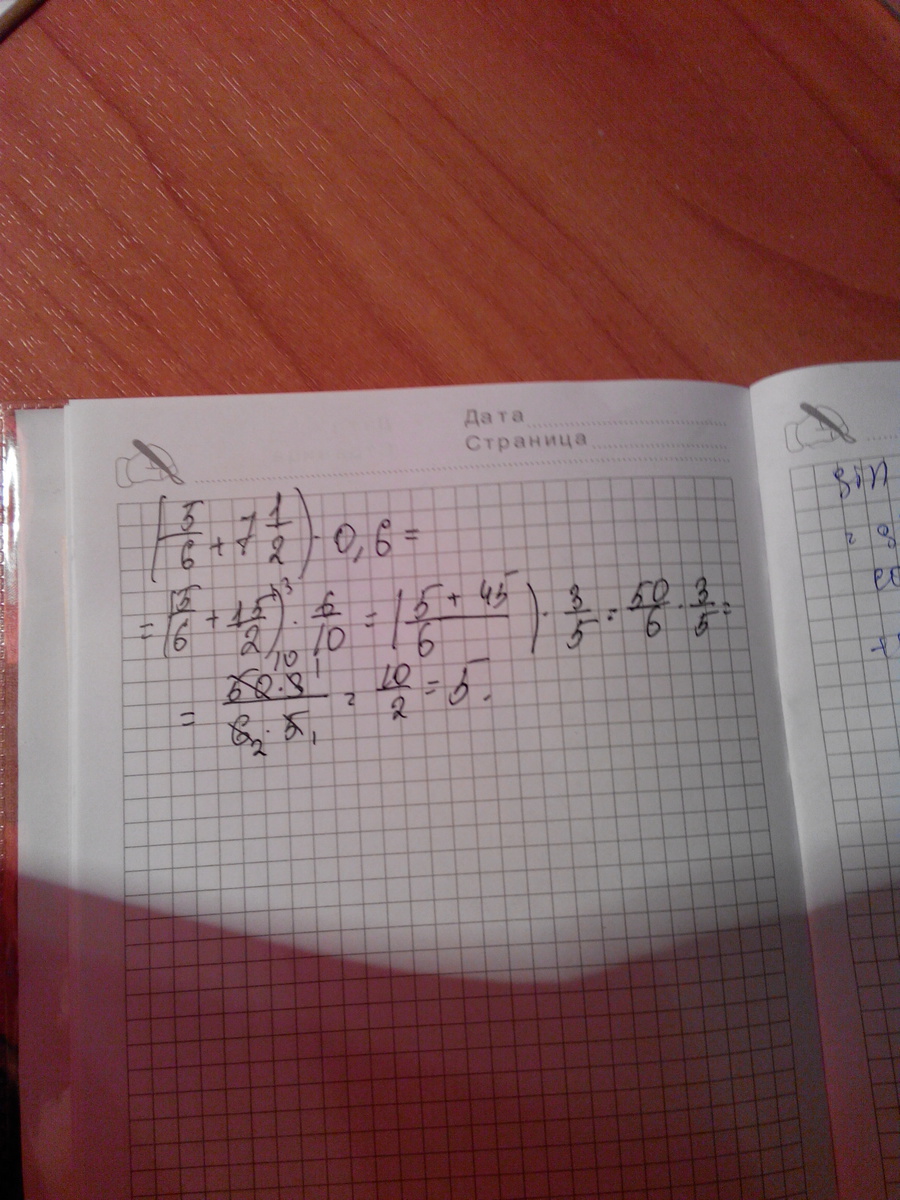 Дата
Страница
(5/6 + 7 1/2) · 0,6 =
= (5/6 + 15/2 ˣ³) · 6/10 = ((5 + 45)/6) · 3/5 = 50/6 · 3/5 =
= (50 10 · 3 1)/(6 2 · 5 1) = 10/2 = 5.